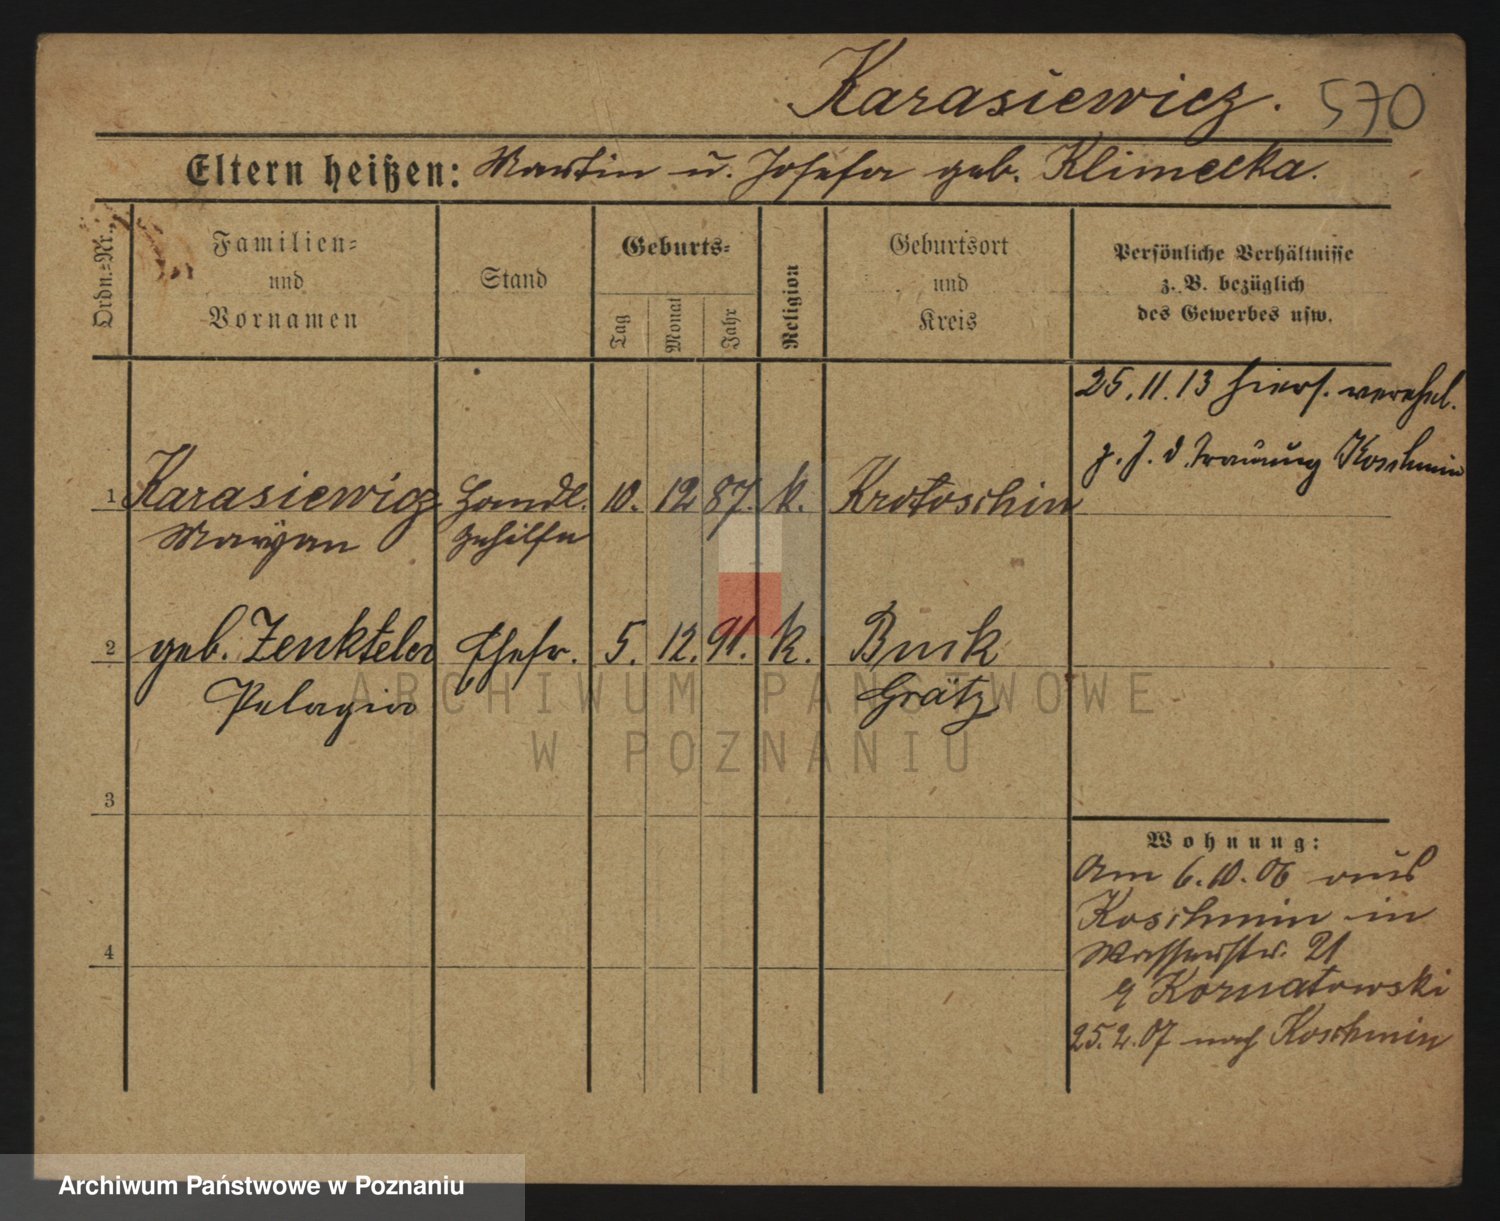 Karasiewicz. 570
Eltern heißen: Martin u. Josefa geb. Klimecka.
Ordn.=Nr.
Familien=
und
Vornamen
Stand
Geburts=
Tag
Monat
Jahr
Religion
Geburtsort
und
Kreis
Persönliche Verhältnisse
z. B. bezüglich
des Gewerbes usw.
25.11.13 hiers. verehel.
z. Z. d. Trauung Koschmin
1 Karasiewicz Handl. 10. 12 87. k. Krotoschin
Maryan gehilfe
2 geb. Zenkteler Ehefr. 5. 12. 91. k. Buk
Pelagia Grätz
3
4
Wohnung:
Am 6.10.06 aus
Koschmin in
Wasserstr. 21
Kornatowski
25.2.07 nach Koschmin
ARCHIWUM PAŃSTWOWE
W POZNANIU
Archiwum Państwowe w Poznaniu